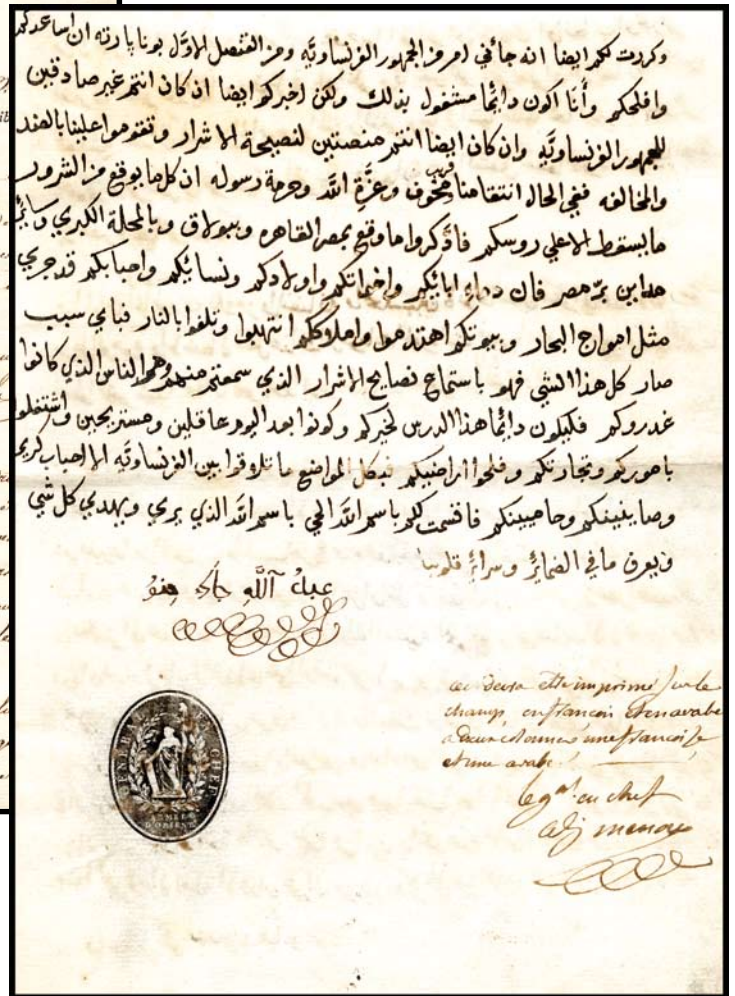 وكررت لكم ايضا انه جائني امر من الجمهور الفرنساويّه ومن القنصل الاوّل بونا پارته ان اساعدكم
وافلحكم وأنا اكون دائما مشغول بذلك ولكن اخبركم ايضا ان كان انتم غير صادقين
للجمهور الفرنساويّه وان كان ايضا انتم منصتين لنصيحة الاشرار وتقوموا علينا بالعند
والمخالفه ففي الحال انتقامنا قريب مخوف وعزّة الله وحرمة رسوله ان كل ما يوقع من الشرور
ما يسقط الا علي روسكم فاذكروا ما وقع بمصر القاهره وببولاق وبالمحلة الكبري وسائر
مداين برّ مصر فان دماء ابائكم واخواتكم واولادكم ونسائكم واحبابكم قد جري
مثل امواج البحار وبيوتكم اهتدموا واملاككم انتهبوا وتلفوا بالنار فباي سبب
صار كل هذا الشي فهو باستماع نصايح الاشرار الذي سمعتم منهم وهم الناس الذي كانوا
غدروكم فليكون دايما هذا الدرس لخيركم وكونوا بعد اليوم عاقلين ومستريحين واشتغلوا
باموركم وتجارتكم وفلحوا اراضيكم فبكل المواضع ما تلاوقوا بين الفرنساويّه الا احباب كريم
وصاينينكم وحاميينكم فاقسمت لكم باسم الله الحي باسم الله الذي يري ويهدي كل شي
ويعرف ما في الضمائر وسرائر قلوبنا
عبد آلله جاك منو
ceci devra etre imprimé sur le
champ, en francois et en arabe
a deux colonnes une francoise
et une arabe.
le gal. en chef
abj menou
GENERAL EN CHEF
ARMÉE
D'ORIENT